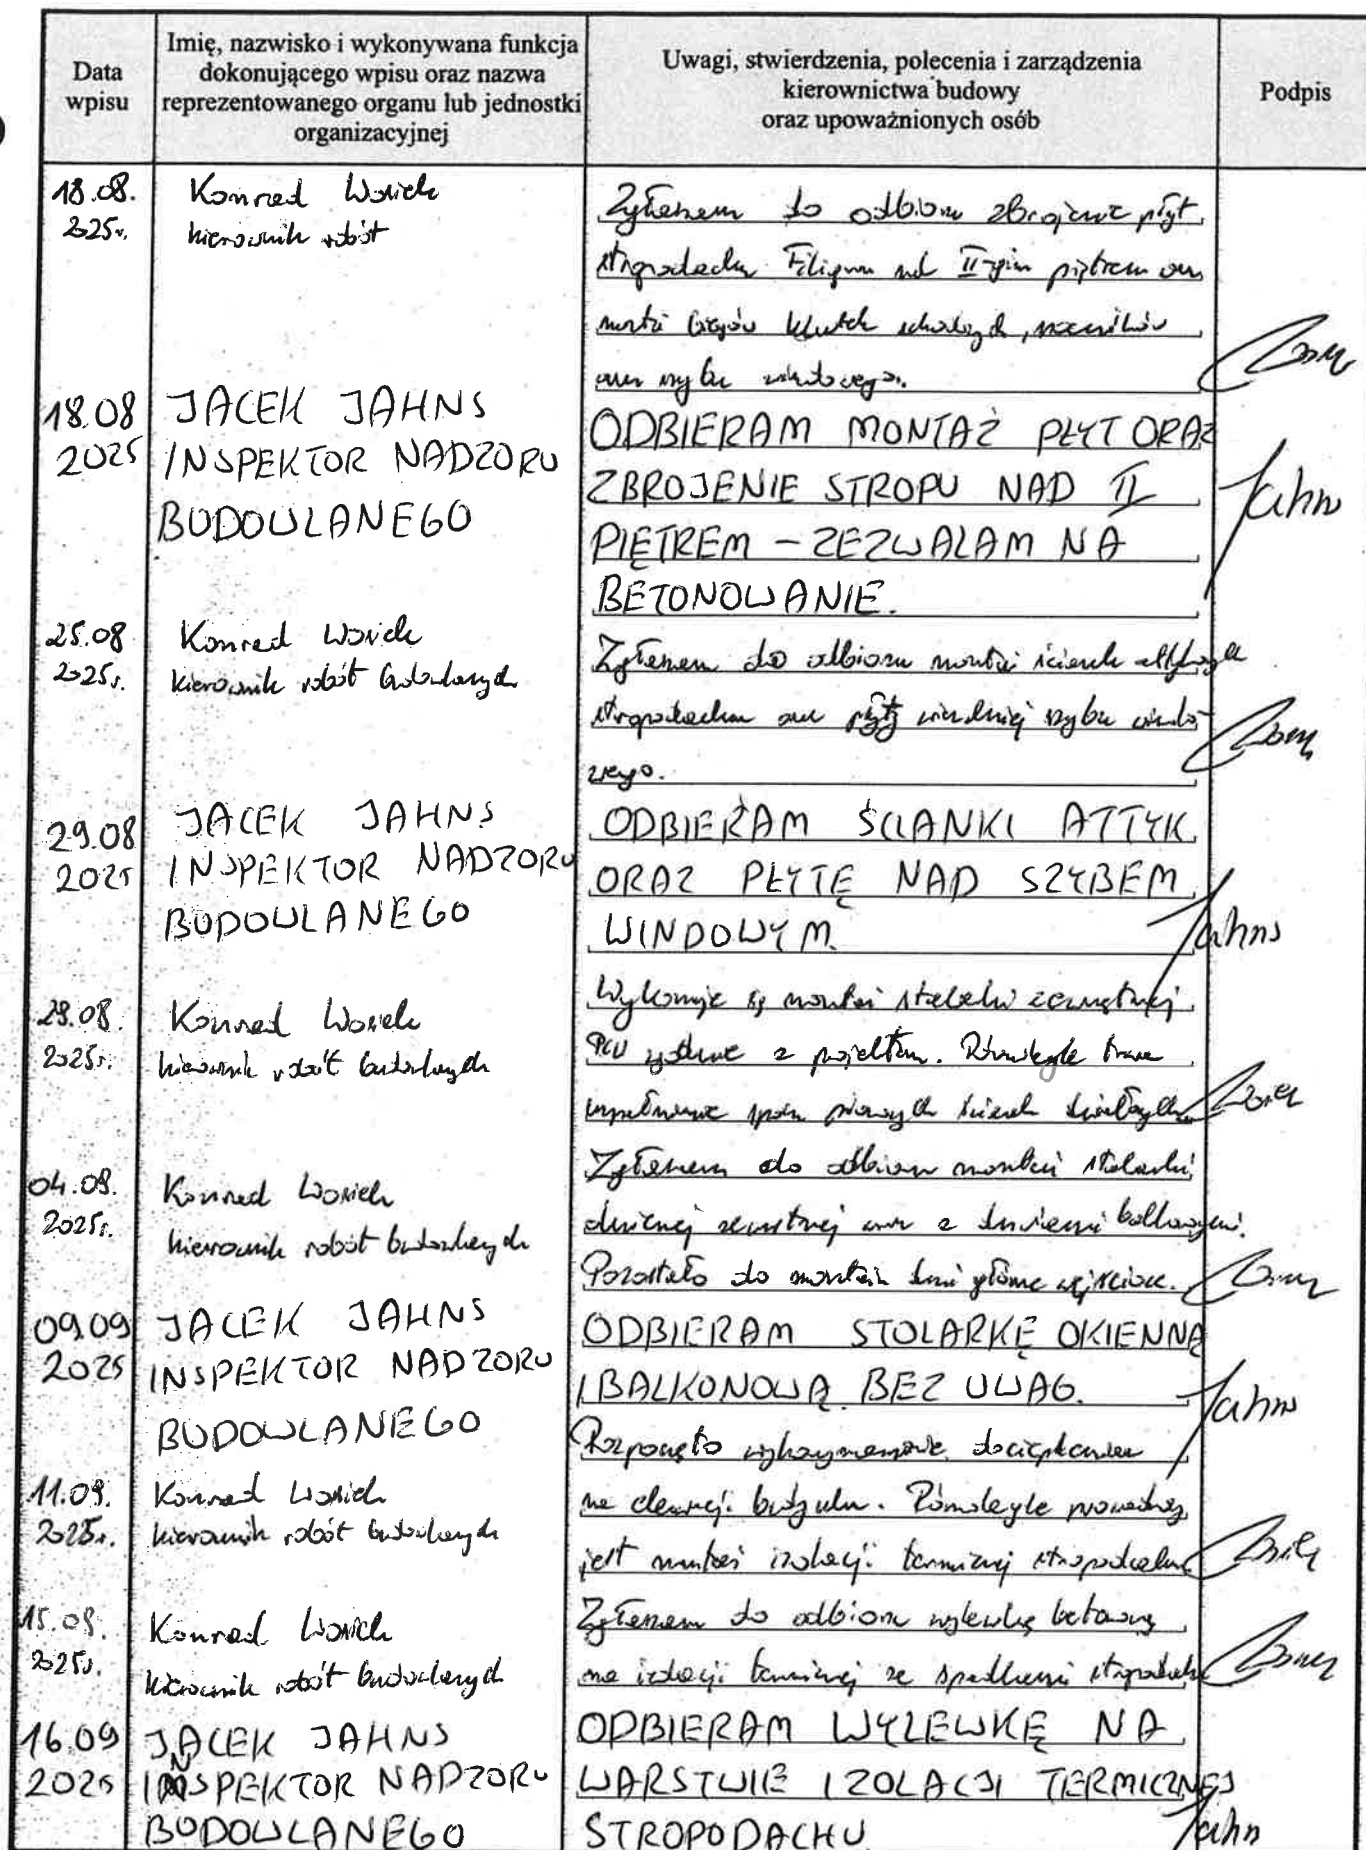 Data
wpisu
Imię, nazwisko i wykonywana funkcja
dokonującego wpisu oraz nazwa
reprezentowanego organu lub jednostki
organizacyjnej
Uwagi, stwierdzenia, polecenia i zarządzenia
kierownictwa budowy
oraz upoważnionych osób
Podpis
18.08.
2025r.
Konrad
kierownik robót
do odbioru zbrojenie płyt
stropodachu Filigran nad II-gim piętrem oraz
montaż biegów klatek schodowych,
oraz szybu windowego.
18.08
2025
JACEK JAHNS
INSPEKTOR NADZORU
BUDOWLANEGO
ODBIERAM MONTAŻ PŁYT ORAZ
ZBROJENIE STROPU NAD II
PIĘTREM - ZEZWALAM NA
BETONOWANIE.
Jahns
25.08
2025r.
Konrad
kierownik robót budowlanych
do odbioru montaż ścianek attykowych
stropodachu oraz płyty szybu windo-
wego.
29.08
2025
JACEK JAHNS
INSPEKTOR NADZORU
BUDOWLANEGO
ODBIERAM ŚCIANKI ATTYK
ORAZ PŁYTĘ NAD SZYBEM
WINDOWYM.
Jahns
2025r.
Konrad
kierownik robót budowlanych
Wykonuje się montaż stolarki zewnętrznej
PCV zgodnie z projektem. Równolegle trwa
wypełnianie spoin pionowych ścianek działowych
2025r.
Konrad
kierownik robót budowlanych
do odbioru montaż stolarki
zewnętrznej wraz z drzwiami balkonowymi.
Pozostało do montażu drzwi główne wejściowe.
09.09
2025
JACEK JAHNS
INSPEKTOR NADZORU
BUDOWLANEGO
ODBIERAM STOLARKĘ OKIENNĄ
I BALKONOWĄ BEZ UWAG.
Jahns
11.09.
2025r.
Konrad
kierownik robót budowlanych
Rozpoczęto docieplenia
na elewacji budynku. Równolegle prowadzony
jest montaż izolacji termicznej stropodachu.
2025r.
Konrad
kierownik robót budowlanych
do odbioru wylewkę betonową
na izolacji termicznej ze spadkami stropodachu
16.09
2025
JACEK JAHNS
INSPEKTOR NADZORU
BUDOWLANEGO
ODBIERAM WYLEWKĘ NA
WARSTWIE IZOLACJI TERMICZNEJ
STROPODACHU
Jahn